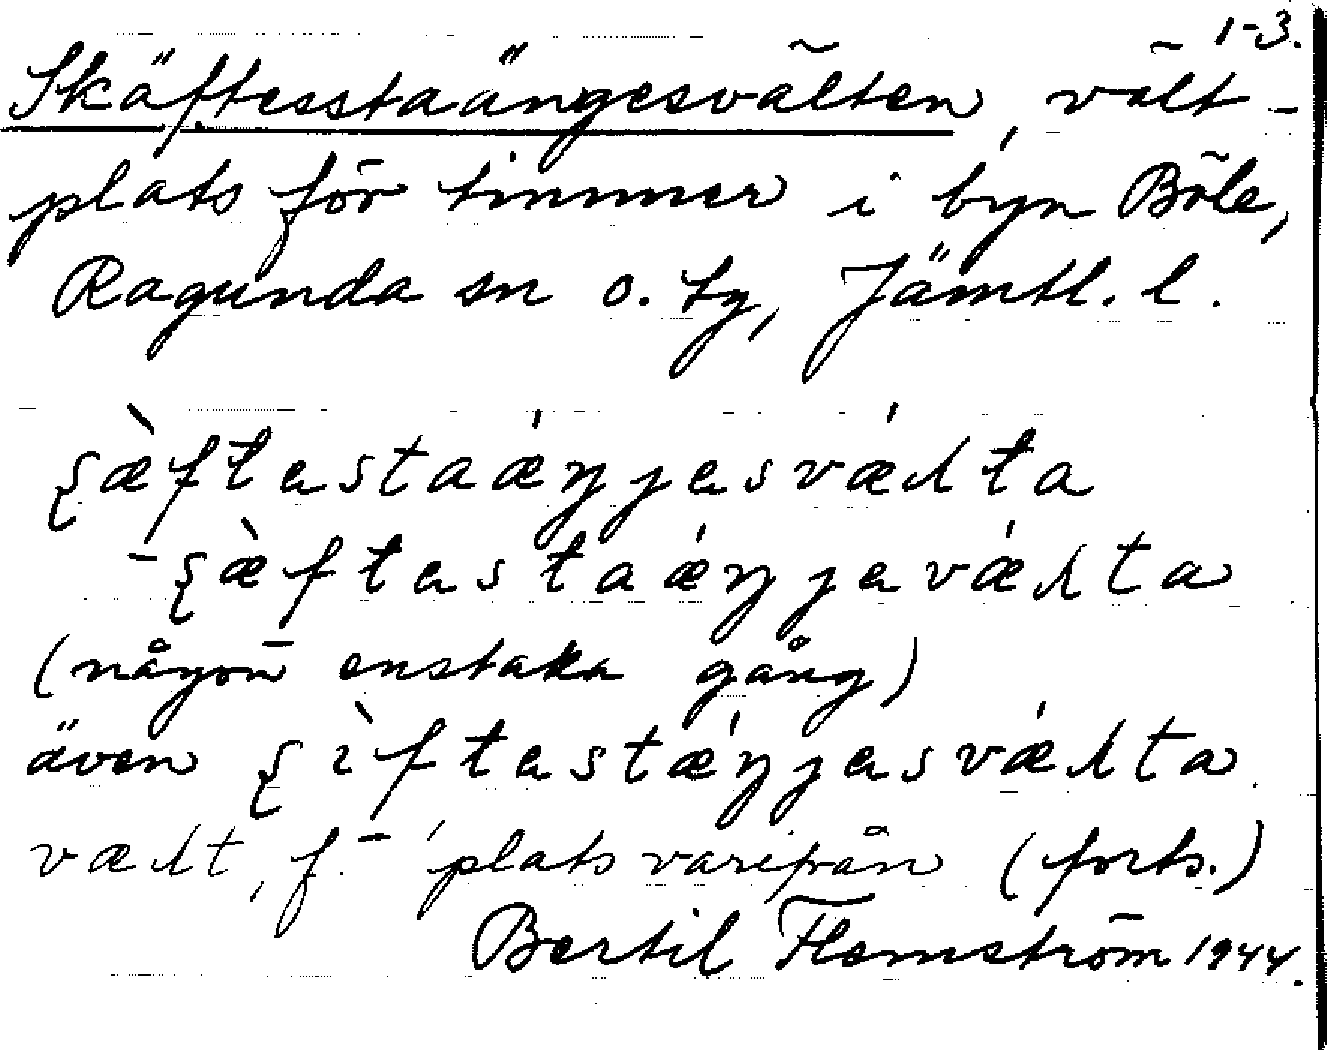 1-3.
Skäftesstaängesvälten, vält-
plats för timmer i byn Böle,
Ragunda sn o. tg, Jämtl. l.
ʂæ̀ftestaǽŋjesvǽɬta
-ʂæ̀ftestaǽŋjevǽɬta
(någon enstaka gång)
även ʂìftestǽŋjesvǽɬta
væɬt, f. - 'plats varifrån (forts.)
Bertil Flemström 1944.